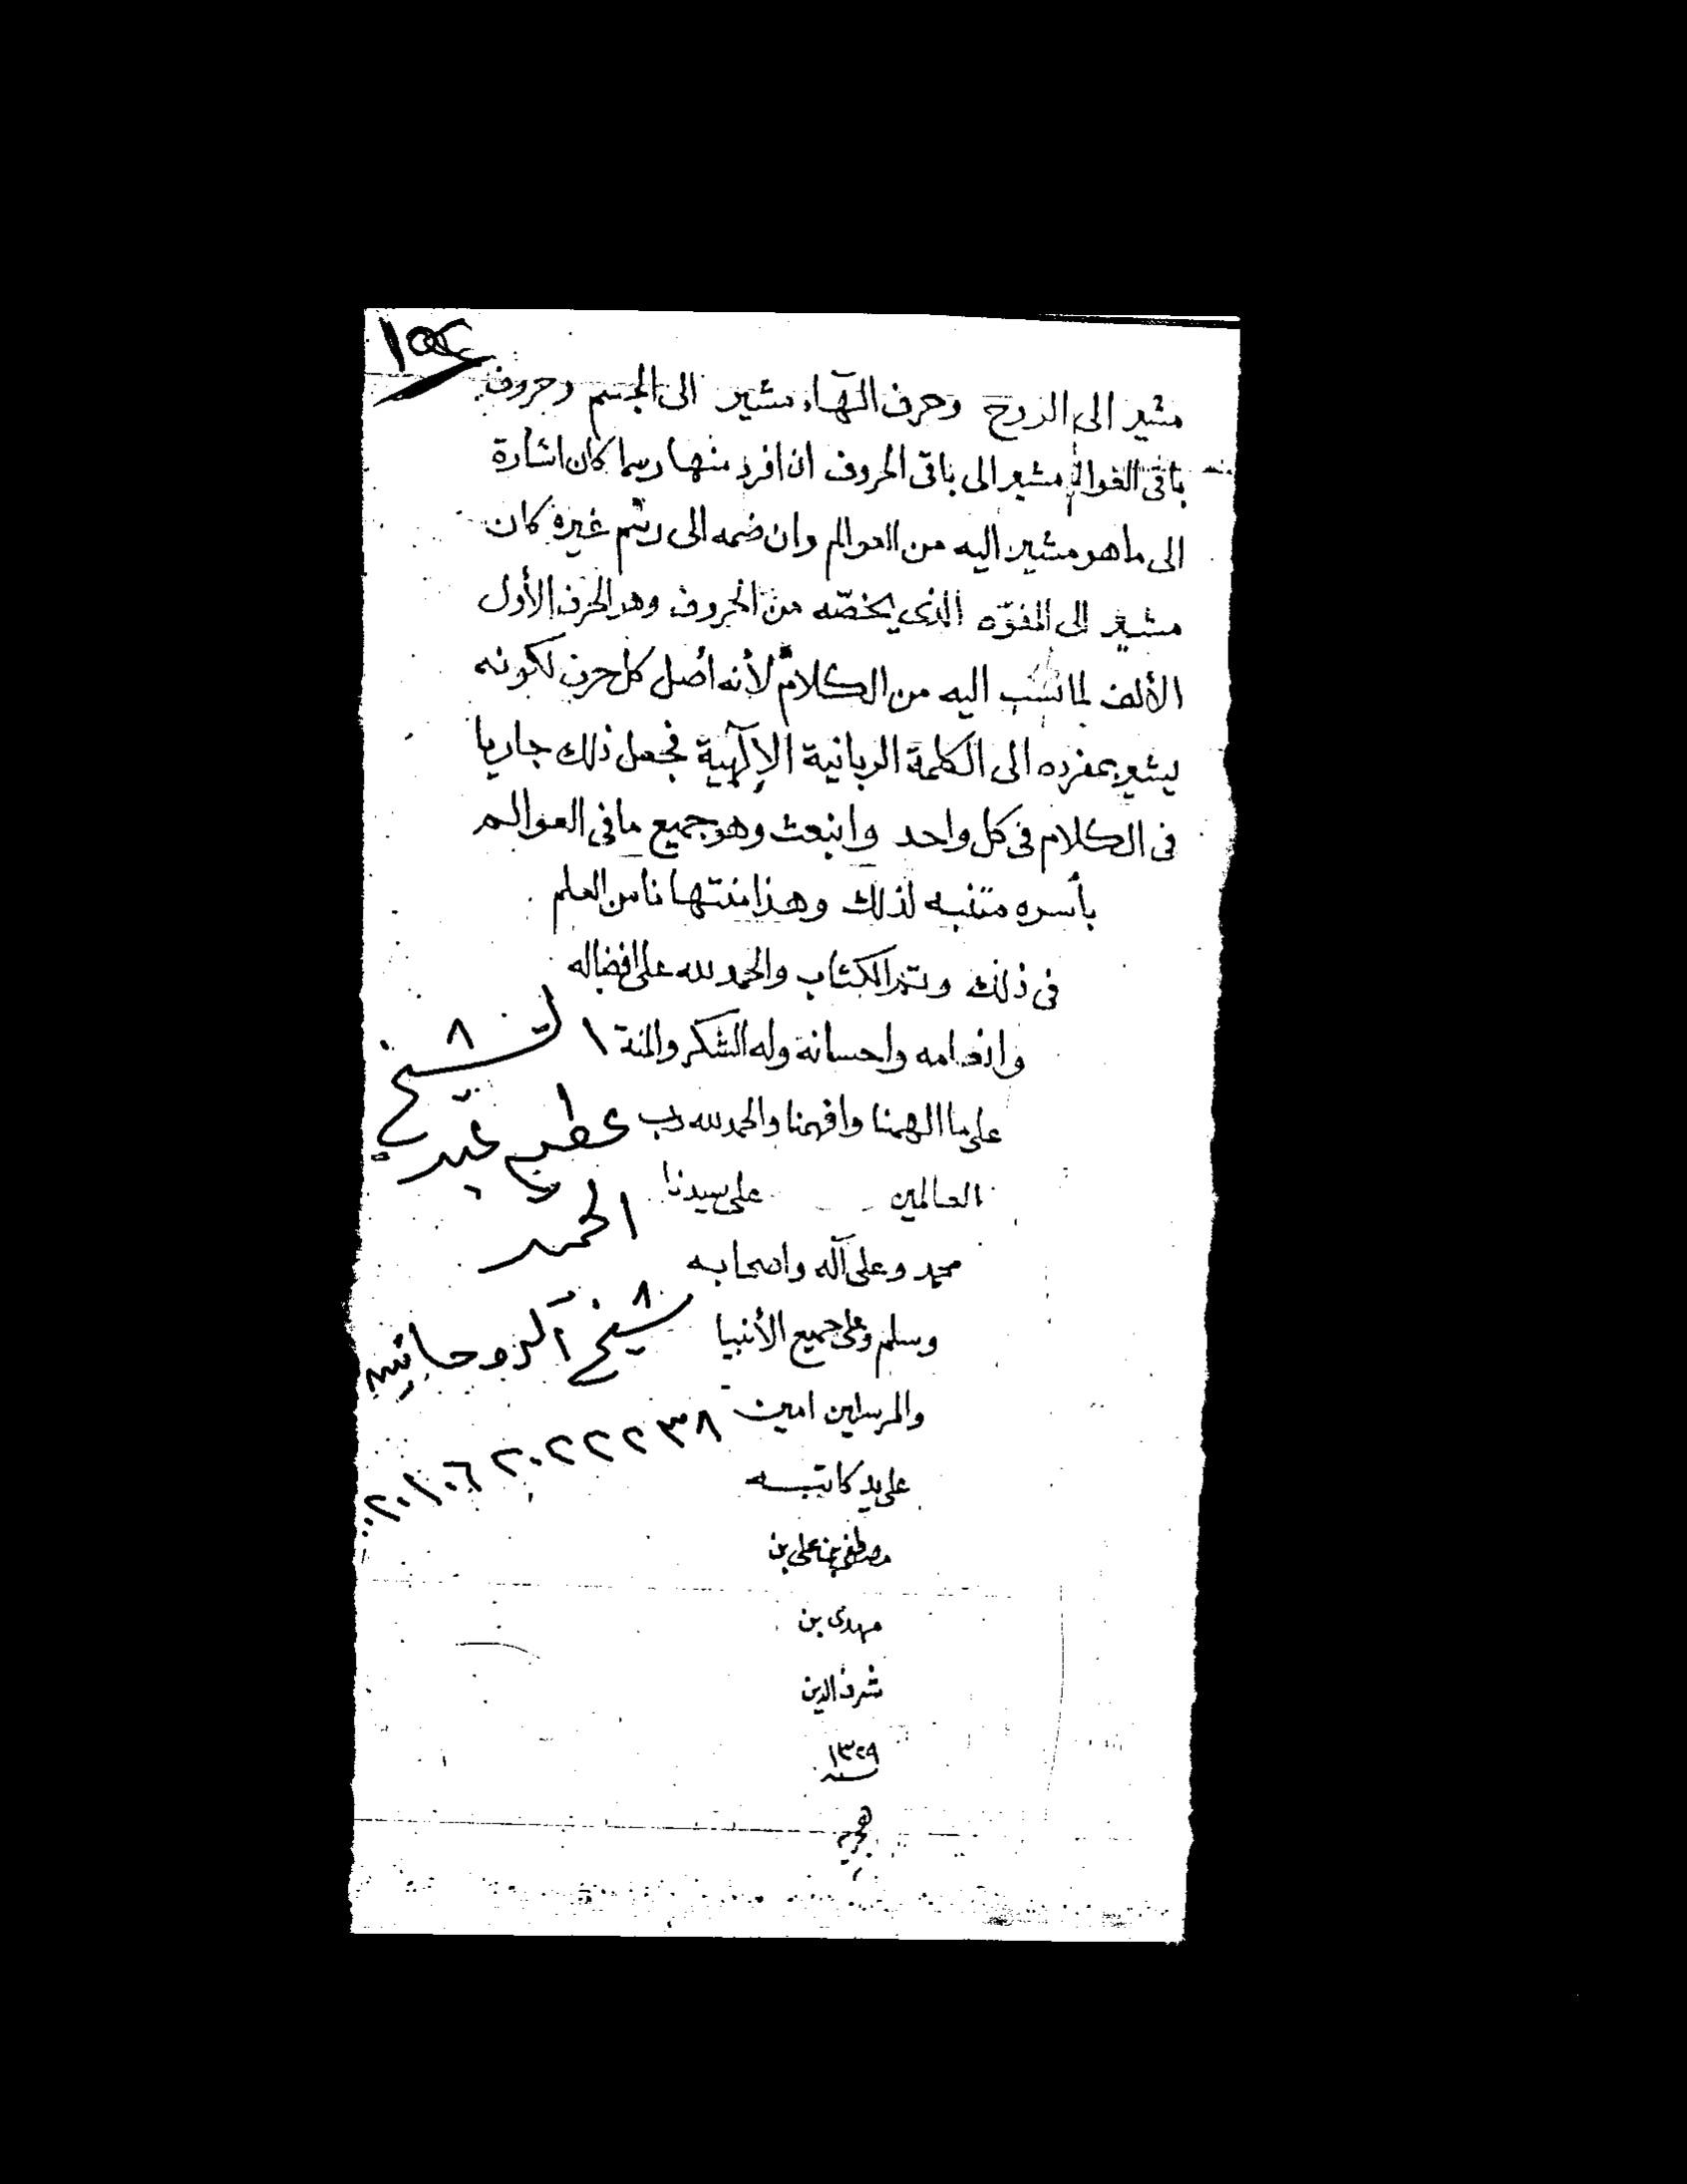 مشير الى الروح وحرف الهاء مشير الى الجسم وحروف
باقى العوالم مشير الى باقى الحروف ان افرد منها رسما كان اشارة
الى ما هو مشير اليه من العوالم وان ضمه الى رسم غيره كان
مشير الى المفوّه الذى يخصّه من الحروف وهو الحرف الأول
الألف لما نسب اليه من الكلام لأنه أصل كل حرف لكونه
يشير بمفرده الى الكلمة الربانية الإلٓهية فجعل ذلك جاريا
فى الكلام فى كل واحد وانبعث وهو جميع ما فى العوالم
بأسره متنبه لذلك وهذا منتها نا من العلم
فى ذلك وتم الكتاب والحمد لله على افضاله
وانعامه واحسانه وله الشكر والمنة
على ما الهمنا وافهمنا والحمد لله رب
العالمين على سيدنا
محمد وعلى آله واصحابه
وسلم وعلى جميع الأنبيا
والمرسلين امين
على يد كاتبه
مصطفى بن على بن
مهدى بن
شرف الدين
١٣٢٩
سنه
هجريه
الشيخ
عطيه عبد
الحمد
شيخ الروحانيين